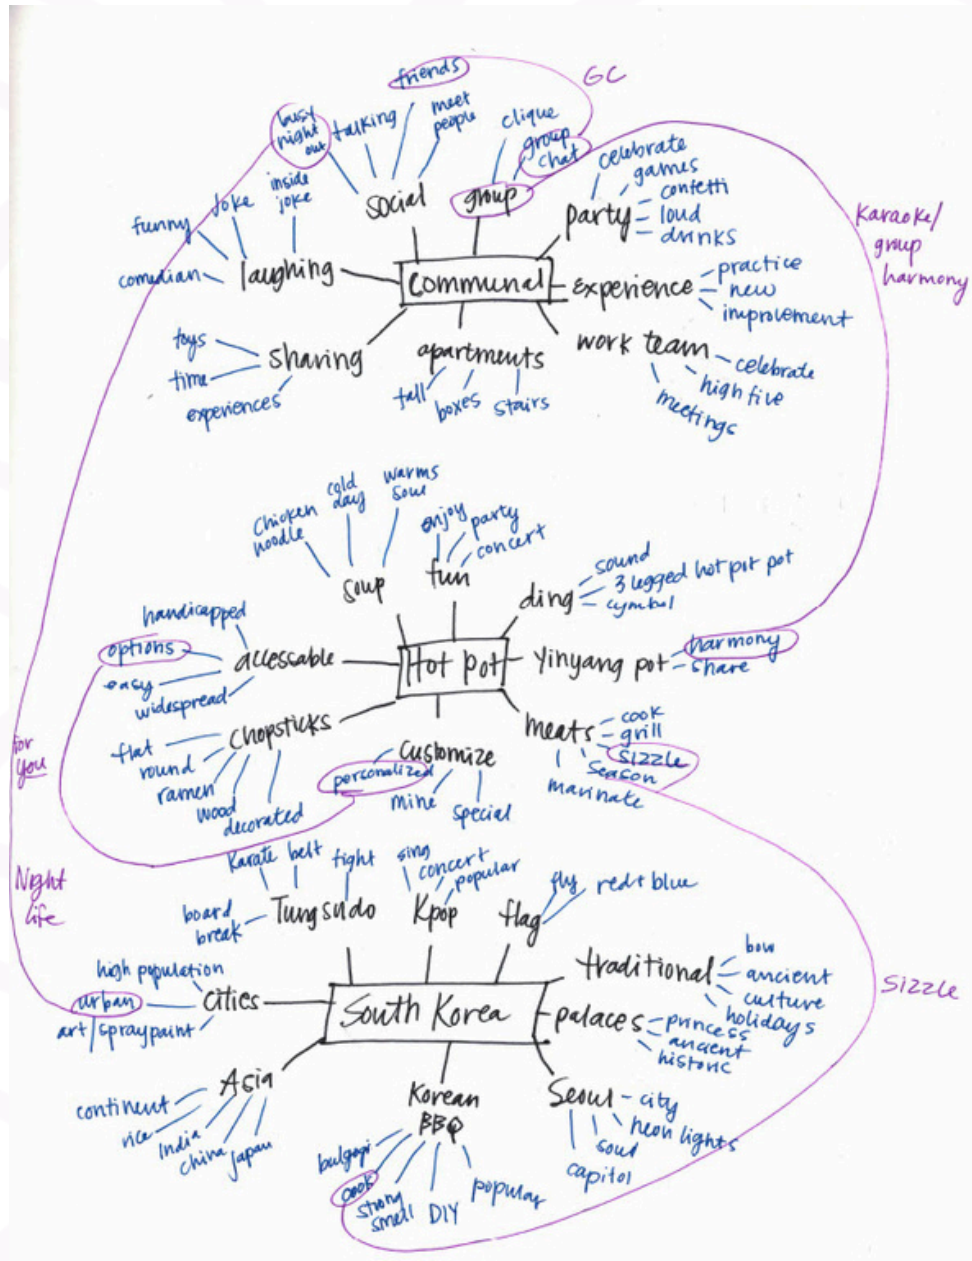 friends
GC
busy
night
out
talking
meet
people
clique
group
chat
celebrate
games
confetti
loud
drinks
social
group
party
inside
joke
joke
funny
comedian
laughing
Communal
experience
practice
new
improvement
Karaoke/
group
harmony
toys
time
experiences
sharing
apartments
tall
boxes
stairs
work team
celebrate
high five
meetings
Chicken
noodle
cold
day
warms
soul
enjoy
party
concert
soup
fun
ding
sound
3 legged hot pot pot
cymbal
handicapped
options
easy
widespread
accessable
Hot pot
Yinyang pot
harmony
share
chopsticks
flat
round
ramen
wood
decorated
customize
personalized
mine
special
meats
cook
grill
sizzle
season
marinate
for
you
Night
life
Karate
belt
fight
board
break
Tungsudo
sing
concert
popular
Kpop
fly
red + blue
flag
traditional
bow
ancient
culture
holidays
high population
urban
art/spraypaint
cities
South Korea
palaces
princess
ancient
historic
sizzle
Asia
continent
rice
India
china
japan
Korean
BBQ
bulgogi
cook
strong
smell
DIY
popular
Seoul
city
neon lights
soul
capitol